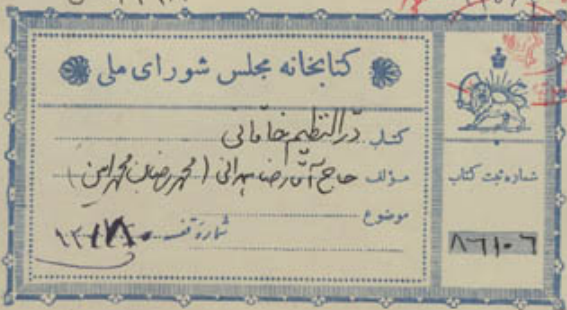 کتابخانه مجلس شورای ملی
کتاب درالنظیم خاقانی
مؤلف حاج آقا رضا همدانی (محمد رضا بن محمد امین)
موضوع
شماره قفسه
شماره ثبت کتاب
۸۶۱۰۶